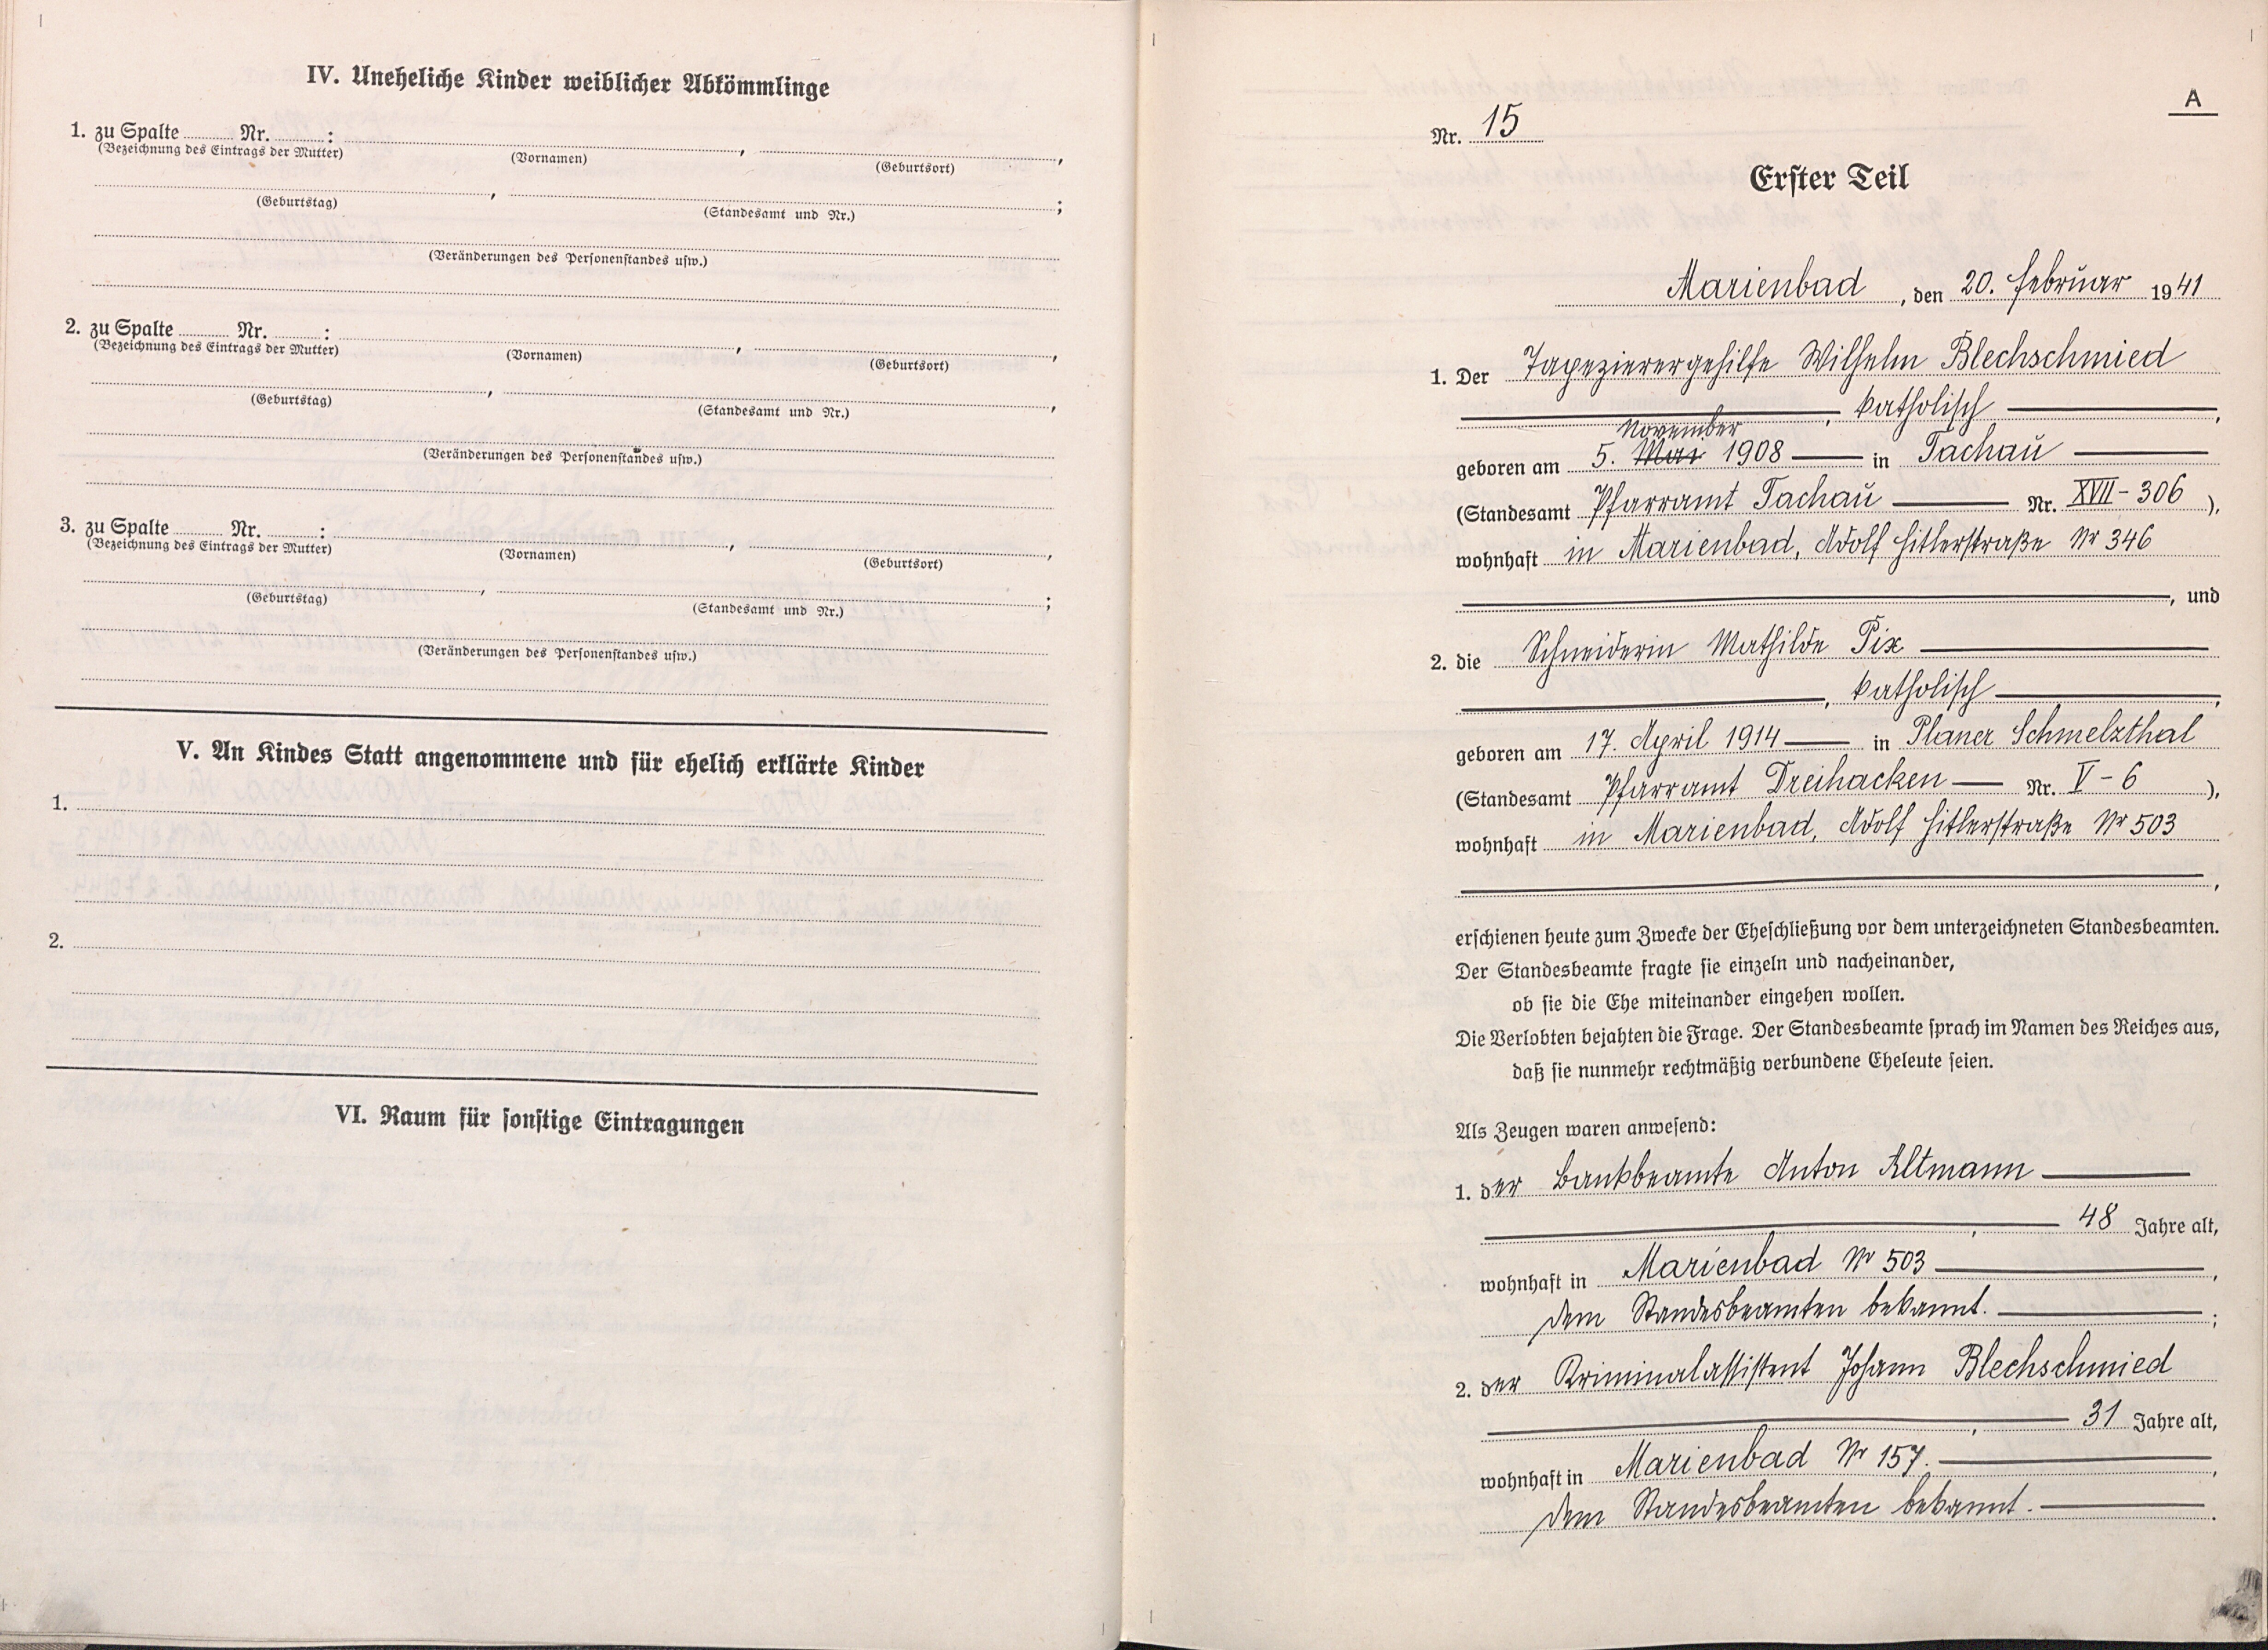 IV. Uneheliche Kinder weiblicher Abkömmlinge
1. zu Spalte ........ Nr. ........ :
(Bezeichnung des Eintrags der Mutter) (Vornamen) , (Geburtsort) ,
(Geburtstag) , (Standesamt und Nr.) ;
(Veränderungen des Personenstandes usw.)
2. zu Spalte ........ Nr. ........ :
(Bezeichnung des Eintrags der Mutter) (Vornamen) , (Geburtsort) ,
(Geburtstag) , (Standesamt und Nr.) ,
(Veränderungen des Personenstandes usw.)
3. zu Spalte ........ Nr. ........ :
(Bezeichnung des Eintrags der Mutter) (Vornamen) , (Geburtsort) ,
(Geburtstag) , (Standesamt und Nr.) ;
(Veränderungen des Personenstandes usw.)
V. An Kindes Statt angenommene und für ehelich erklärte Kinder
1.
2.
VI. Raum für sonstige Eintragungen
A
Nr. 15
Erster Teil
Marienbad , den 20. Februar 1941
1. Der Tapezierergehilfe Wilhelm Blechschmied
, katholisch ,
November
geboren am 5. Mai 1908 in Tachau
(Standesamt Pfarramt Tachau Nr. XVII - 306 ),
wohnhaft in Marienbad, Adolf Hitlerstraße Nr 346
, und
2. die Schneiderin Mathilde Pix
, katholisch ,
geboren am 17. April 1914 in Planer Schmelzthal
(Standesamt Pfarramt Dreihacken Nr. V - 6 ),
wohnhaft in Marienbad, Adolf Hitlerstraße Nr 503
,
erschienen heute zum Zwecke der Eheschließung vor dem unterzeichneten Standesbeamten.
Der Standesbeamte fragte sie einzeln und nacheinander,
ob sie die Ehe miteinander eingehen wollen.
Die Verlobten bejahten die Frage. Der Standesbeamte sprach im Namen des Reiches aus,
daß sie nunmehr rechtmäßig verbundene Eheleute seien.
Als Zeugen waren anwesend:
1. der Bankbeamte Anton Altmann
, 48 Jahre alt,
wohnhaft in Marienbad Nr 503 ,
dem Standesbeamten bekannt. ;
2. der Kriminalassistent Johann Blechschmied
, 31 Jahre alt,
wohnhaft in Marienbad Nr 157. ,
dem Standesbeamten bekannt. .